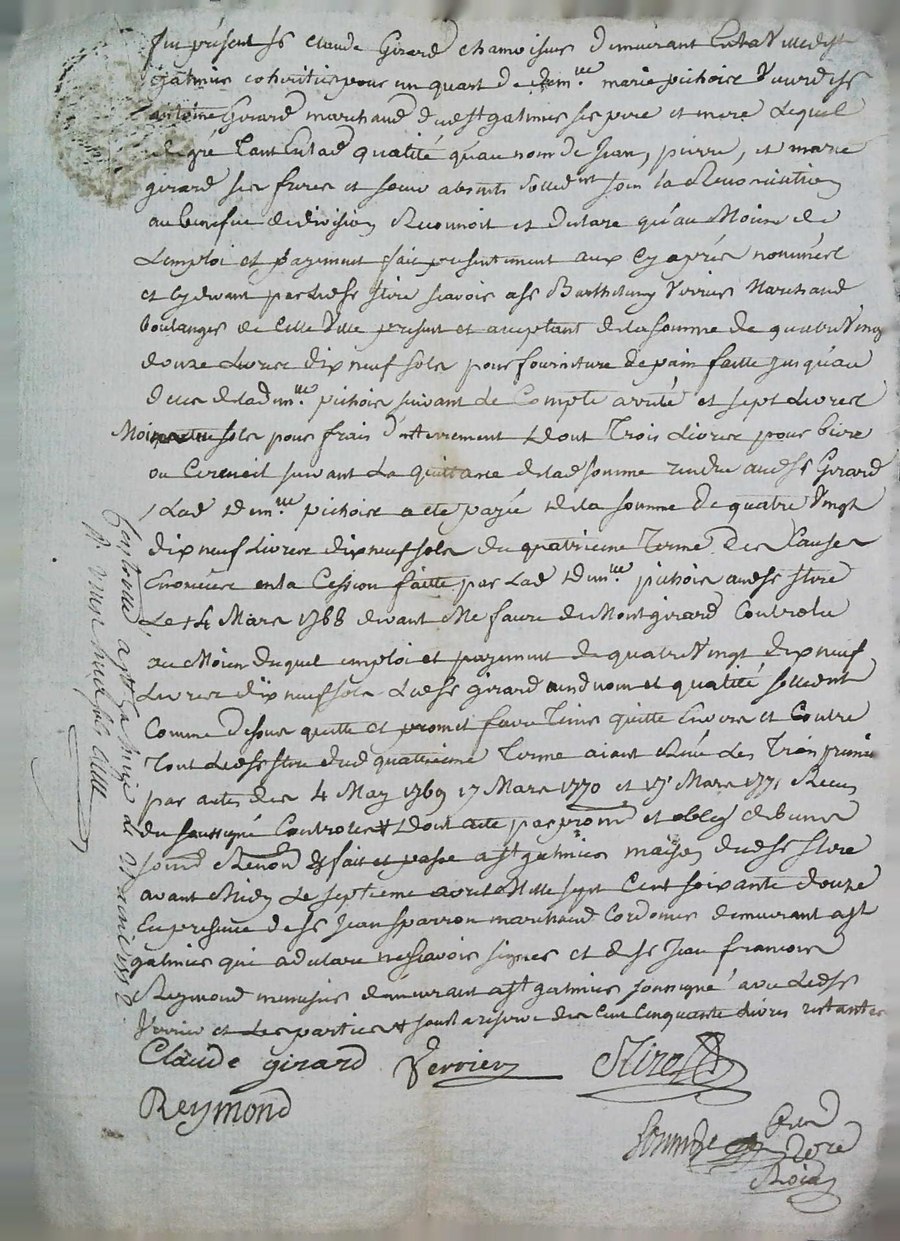 fut présent sr Claude Girard chamoiseur demeurant En la Ville de st
galmier cohéritier pour un quart de demlle marie pichoire Veuve de sr
antoine Girard marchand dud st galmier ses pere et mere Lequel
de gré tant En lad qualité qu'au nom de Jean, pierre, et marie
girard ses freres et soeur absents sollidt sous la Renonciation
au benefice de division Reconnoit et declare qu'au Moien de
L'emploi et payement fait presentement aux cy après nommées
et cy devant par led sr Stre scavoir a sr Barthelemy Verrier Marchand
boulanger de cette Ville present et acceptant de la somme de quatre Vingt
douze Livres dix neuf sols pour fourniture de pain faitte jusqu'au
deces de lad dmlle pichoire suivant Le Compte arrêté et sept Livres
sols pour frais d'enterrement dont Trois Livres pour biere
ou Cercueil suivant La quittance de lad somme rendue aud sr Girard
Lad demlle pichoire a eté payée de la somme de quatre Vingt
dix neuf Livres dix neuf sols du quatrieme Terme des Causes
Enoncées en la Cession faitte par Lad demlle pichoire aud sr Stre
Le 14 Mars 1768 devant Me faure de Montgirard Controlée
au Moien duquel emploi et payement de quatre Vingt dix neuf
Livres dix neuf sols Led sr girard aud nom et qualité sollidt
Comme dessus quitte et promet faire Tenir quitte Envers et Contre
Tout Led sr Stre dud quatrieme Terme aiant Eté Les Trois premiers
par actes des 4 May 1769 17 Mars 1770 et 15 Mars 1771 Recus
du soussigné Controlés dont acte par prom et oblig
soum Renon & fait et passé a st galmier maison dud sr Stre
avant Midy Le septieme avril Mille sept Cent soixante douze
En presence de sr Jean sparron marchand Cordonier demeurant a st
galmier qui a declaré ne scavoir signer et de sr Jean francois
Reymond menusier demeurant a st galmier soussigné avec Led sr
Verrier et Les parties sous la reserve des Cent Cinquante Livres restantes
Claude girard Verrier
Reymond
Controllé a st